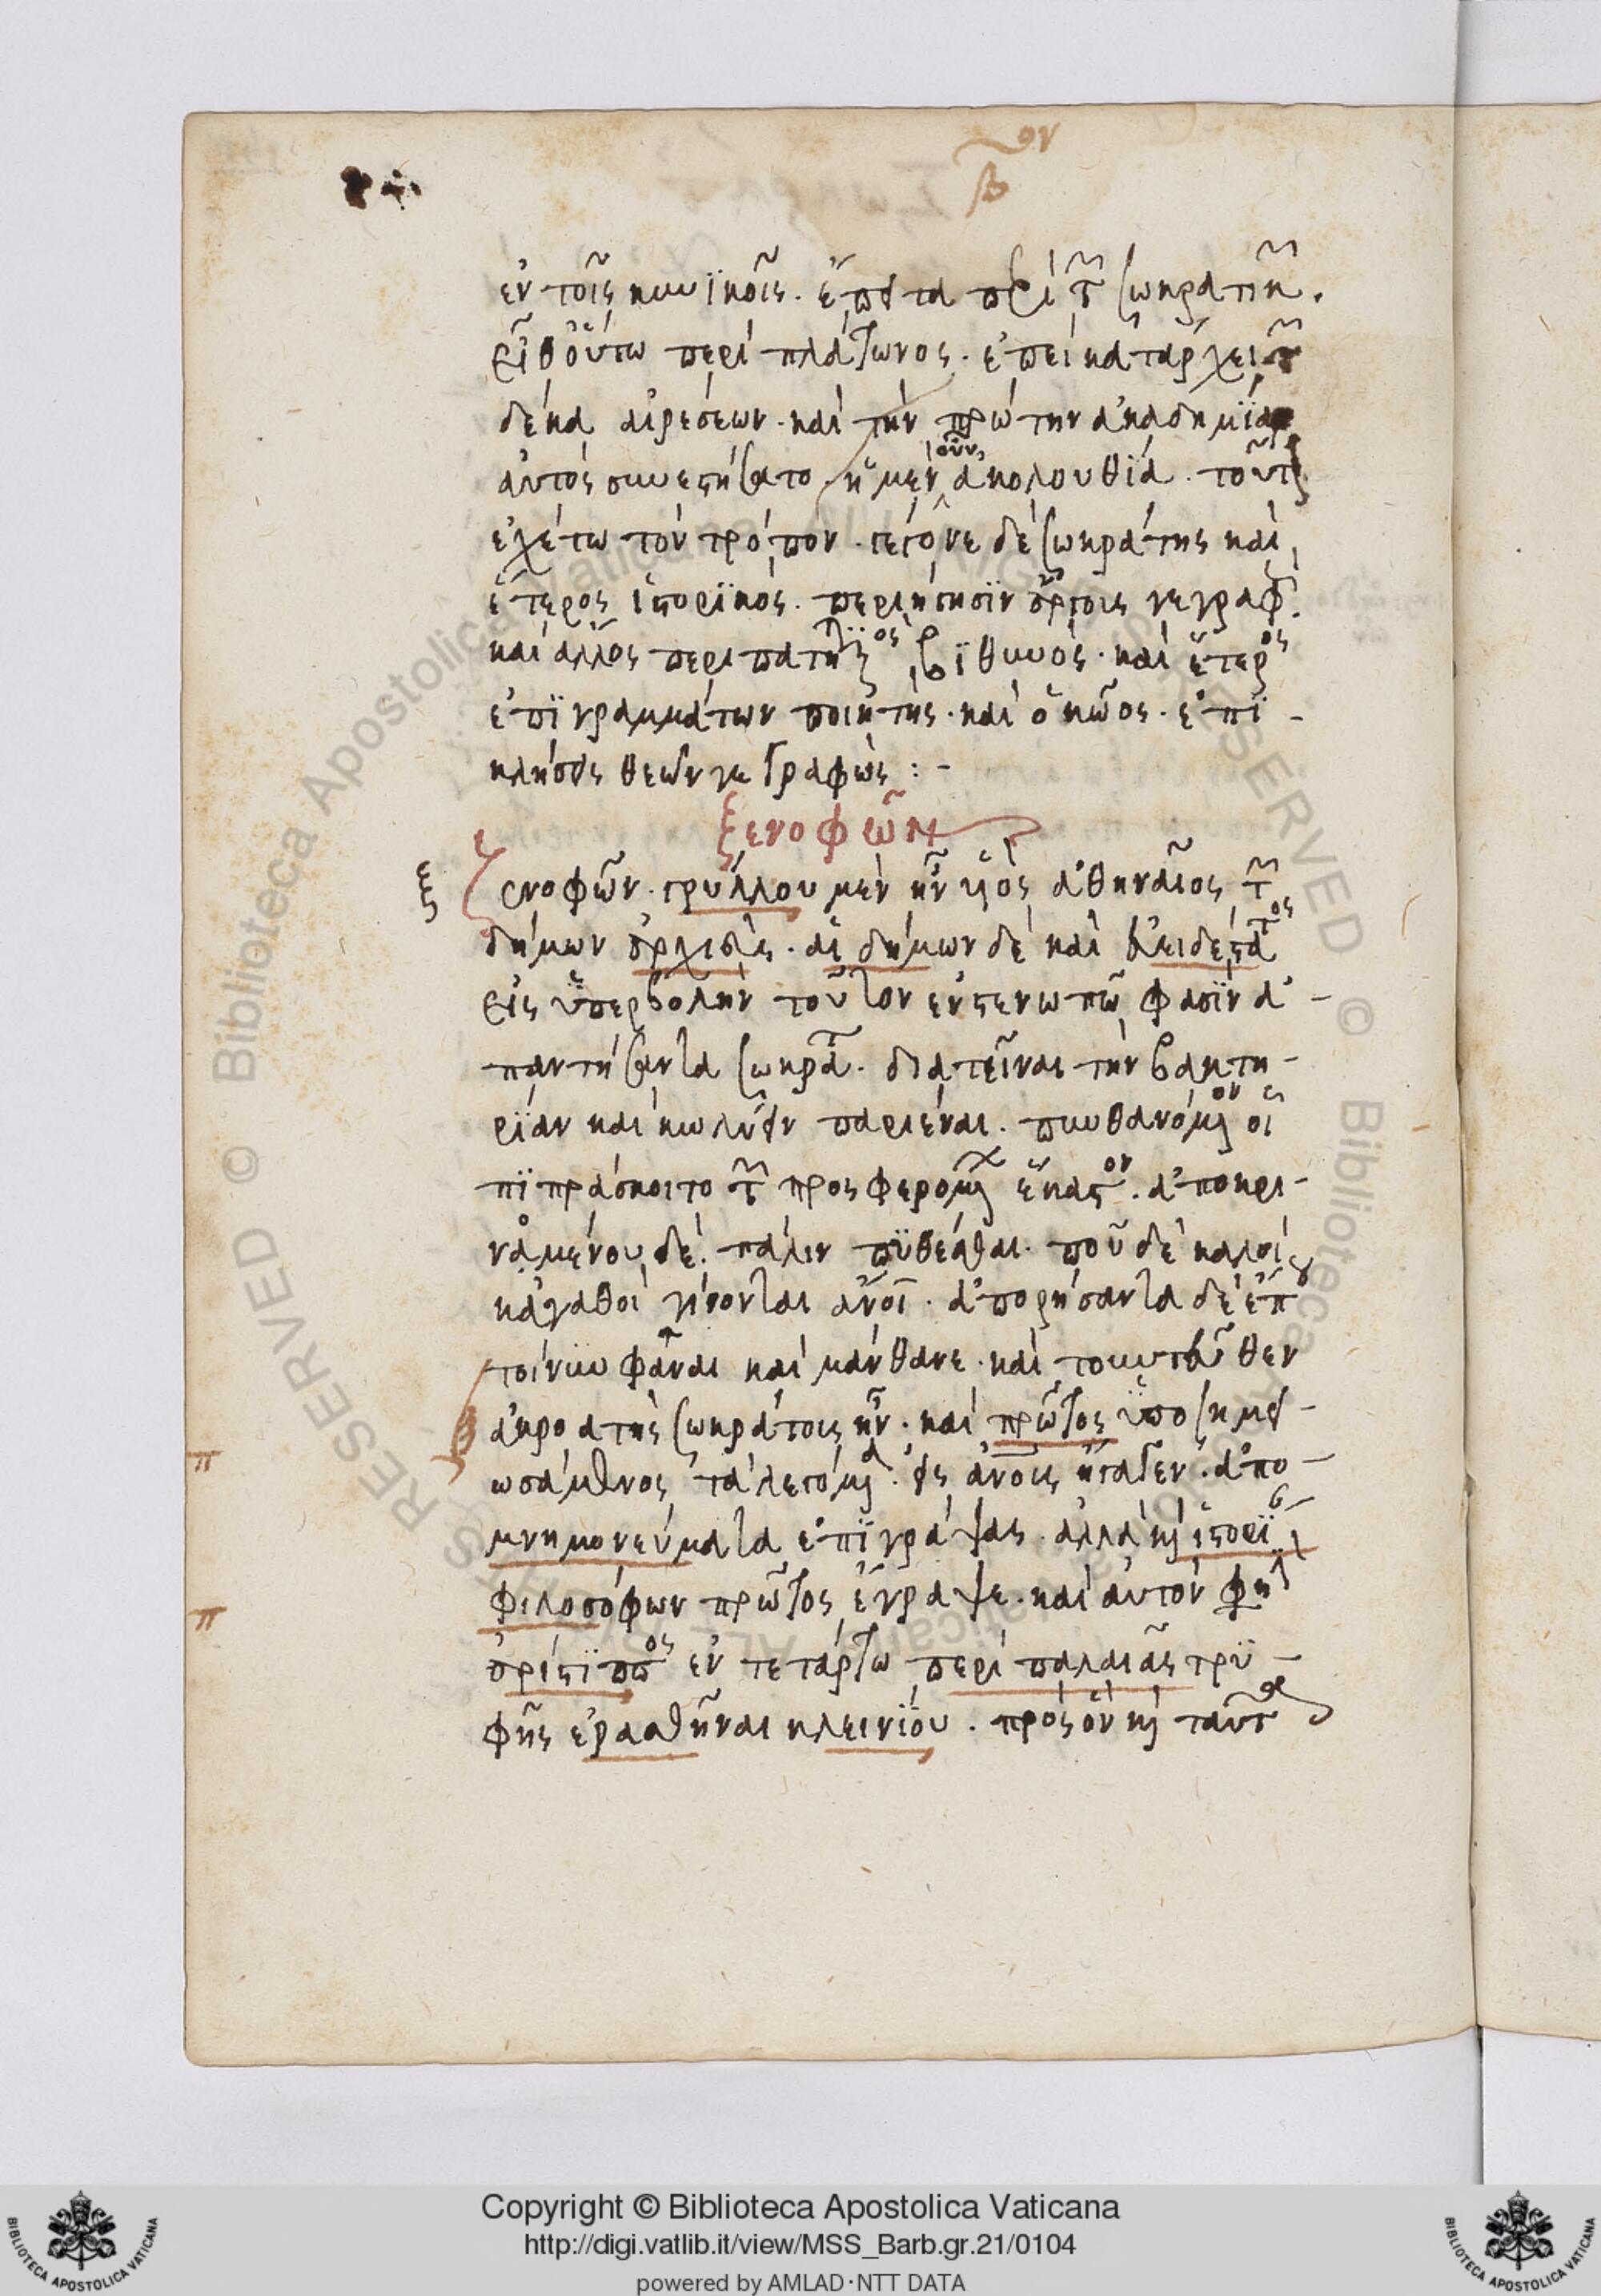 ον
β
ἐν τοῖς κυνϊκοῖς. ἔπειτα περὶ τῶν σωκρατικῶν.
εἶθ οὕτω περὶ πλάτωνος. ἐπεὶ κατάρχει τῶν
δέκα αἱρέσεων. καὶ τὴν πρώτην ἀκαδημΐαν
αὐτὸς συνεστήσατο. ἡ μὲν οὖν ἀκολουθία. τοῦτον
ἐχέτω τὸν τρόπον. γέγονε δὲ σωκράτης καὶ
ἕτερος ἱστορϊκὸς. περιήγησϊν ἄργους γεγραφ.
καὶ ἄλλος περιπατητϊκὸς βϊθυνός. καὶ ἕτερος
ἐπϊγραμμάτων ποιητὴς. καὶ ὁ κῶος. ἐπϊ-
κλήσεις θεῶν γεγραφώς :-
ξενοφῶν
ξενοφῶν. γρύλλου μὲν ἦν υἱὸς ἀθηναῖος τῶν
δήμων ἀρχιεὺς. αἰδήμων δὲ καὶ εὐειδέστατος
εἰς ὑπερβολὴν τοῦτον ἐν στενωπῶ φασϊν ἀ-
παντήσαντα σωκράτ. διατεῖναι τὴν βακτη-
ρΐαν καὶ κωλύειν παριέναι. πυνθανόμενον εἰ
πϊπράσκοιτο τῶν προσφερομένων ἕκαστον. ἀποκρι-
ναμένου δὲ. πάλιν πϋθέσθαι. ποῦ δὲ καλοὶ
κἀγαθοὶ γίνονται ἄνοι. ἀπορήσαντα δὲ ἕπου
τοίνυν φάναι καὶ μάνθανε. καὶ τουντεῦθεν
ἀκροατὴς σωκράτους ἦν. καὶ πρῶτος ὑποσημει-
ωσάμενος τὰ λεγόμενα. εἰς ἀνους ἤγαγεν. ἀπο-
μνημονεύματα ἐπϊγράψας. ἀλλὰ καὶ ἱστορϊ
φιλοσόφων πρῶτος ἔγραψε. καὶ αὐτὸν φη
ἀρίστϊππος ἐν τετάρτω περὶ παλαιᾶς τρϋ-
φῆς ἐρασθῆναι κλεινΐου. πρὸς ὃν καὶ ταῦτα
ξ
π
π
Copyright © Biblioteca Apostolica Vaticana
http://digi.vatlib.it/view/MSS_Barb.gr.21/0104
powered by AMLAD·NTT DATA